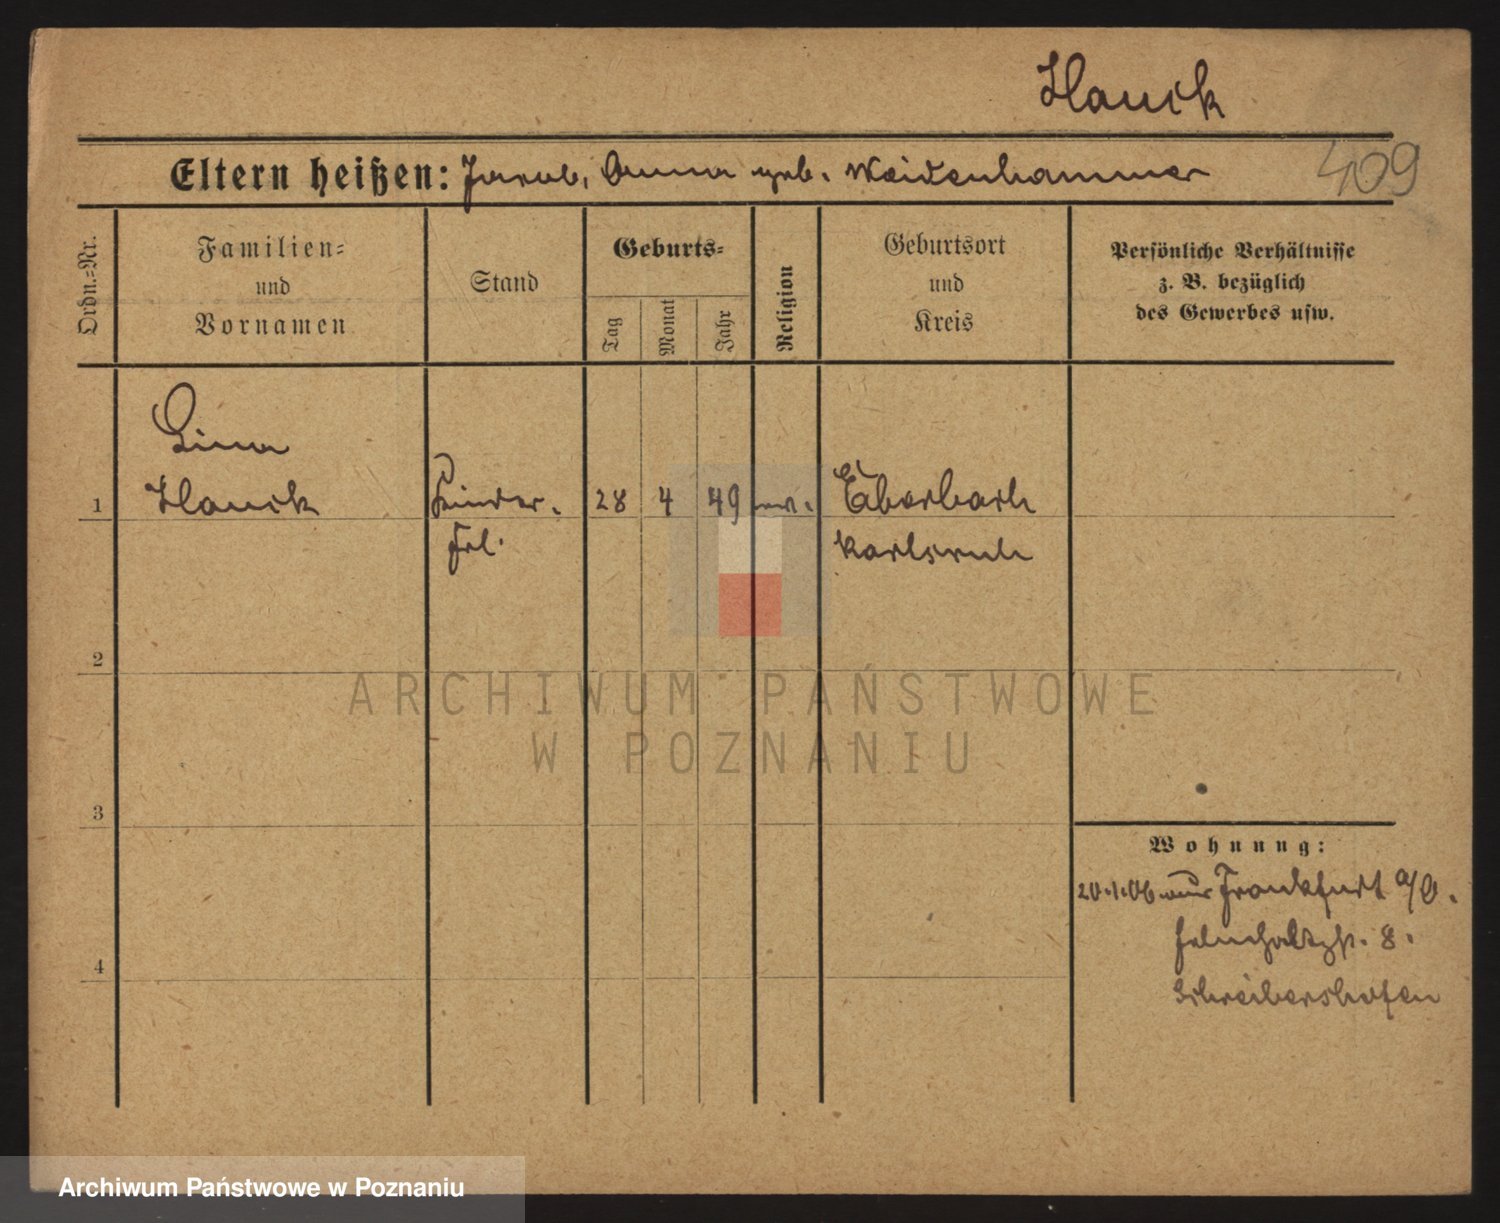 Hauck
409
Eltern heißen: Jacob, Anna geb. Weidenhammer
Ordn.=Nr.
Familien=
und
Vornamen
Stand
Geburts=
Tag
Monat
Jahr
Religion
Geburtsort
und
Kreis
Persönliche Verhältnisse
z. B. bezüglich
des Gewerbes usw.
Lina
1 Hauck Kinder. 28 4 49 ev. Eberbach
Frl. Karlsruh
2
3
4
Wohnung:
20.1.06 aus Frankfurt a/O.
8.
Schreibershofen
ARCHIWUM PAŃSTWOWE
W POZNANIU
Archiwum Państwowe w Poznaniu